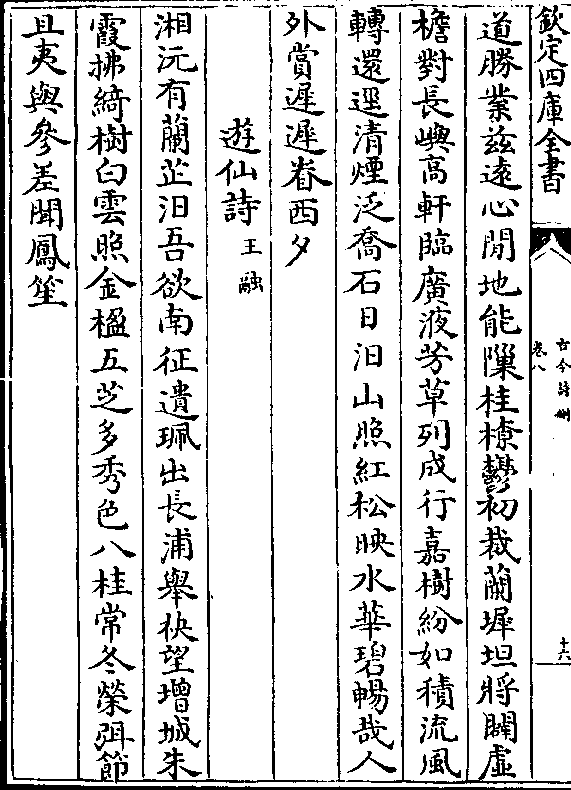 欽定四庫全書
古今詩刪
卷八
十六
道勝業兹逺心閒地能隟桂橑鬱初裁蘭墀坦將闢虚
檐對長嶼髙軒臨廣液芳草列成行嘉樹紛如積流風
轉還逕清煙泛喬石日汨山照紅松映水華碧暢哉人
外賞遲遲眷西夕
遊仙詩王融
湘沅有蘭芷汨吾欲南征遺珮出長浦舉袂望增城朱
霞拂綺樹白雲照金楹五芝多秀色八桂常冬榮弭節
且夷與參差聞鳳笙